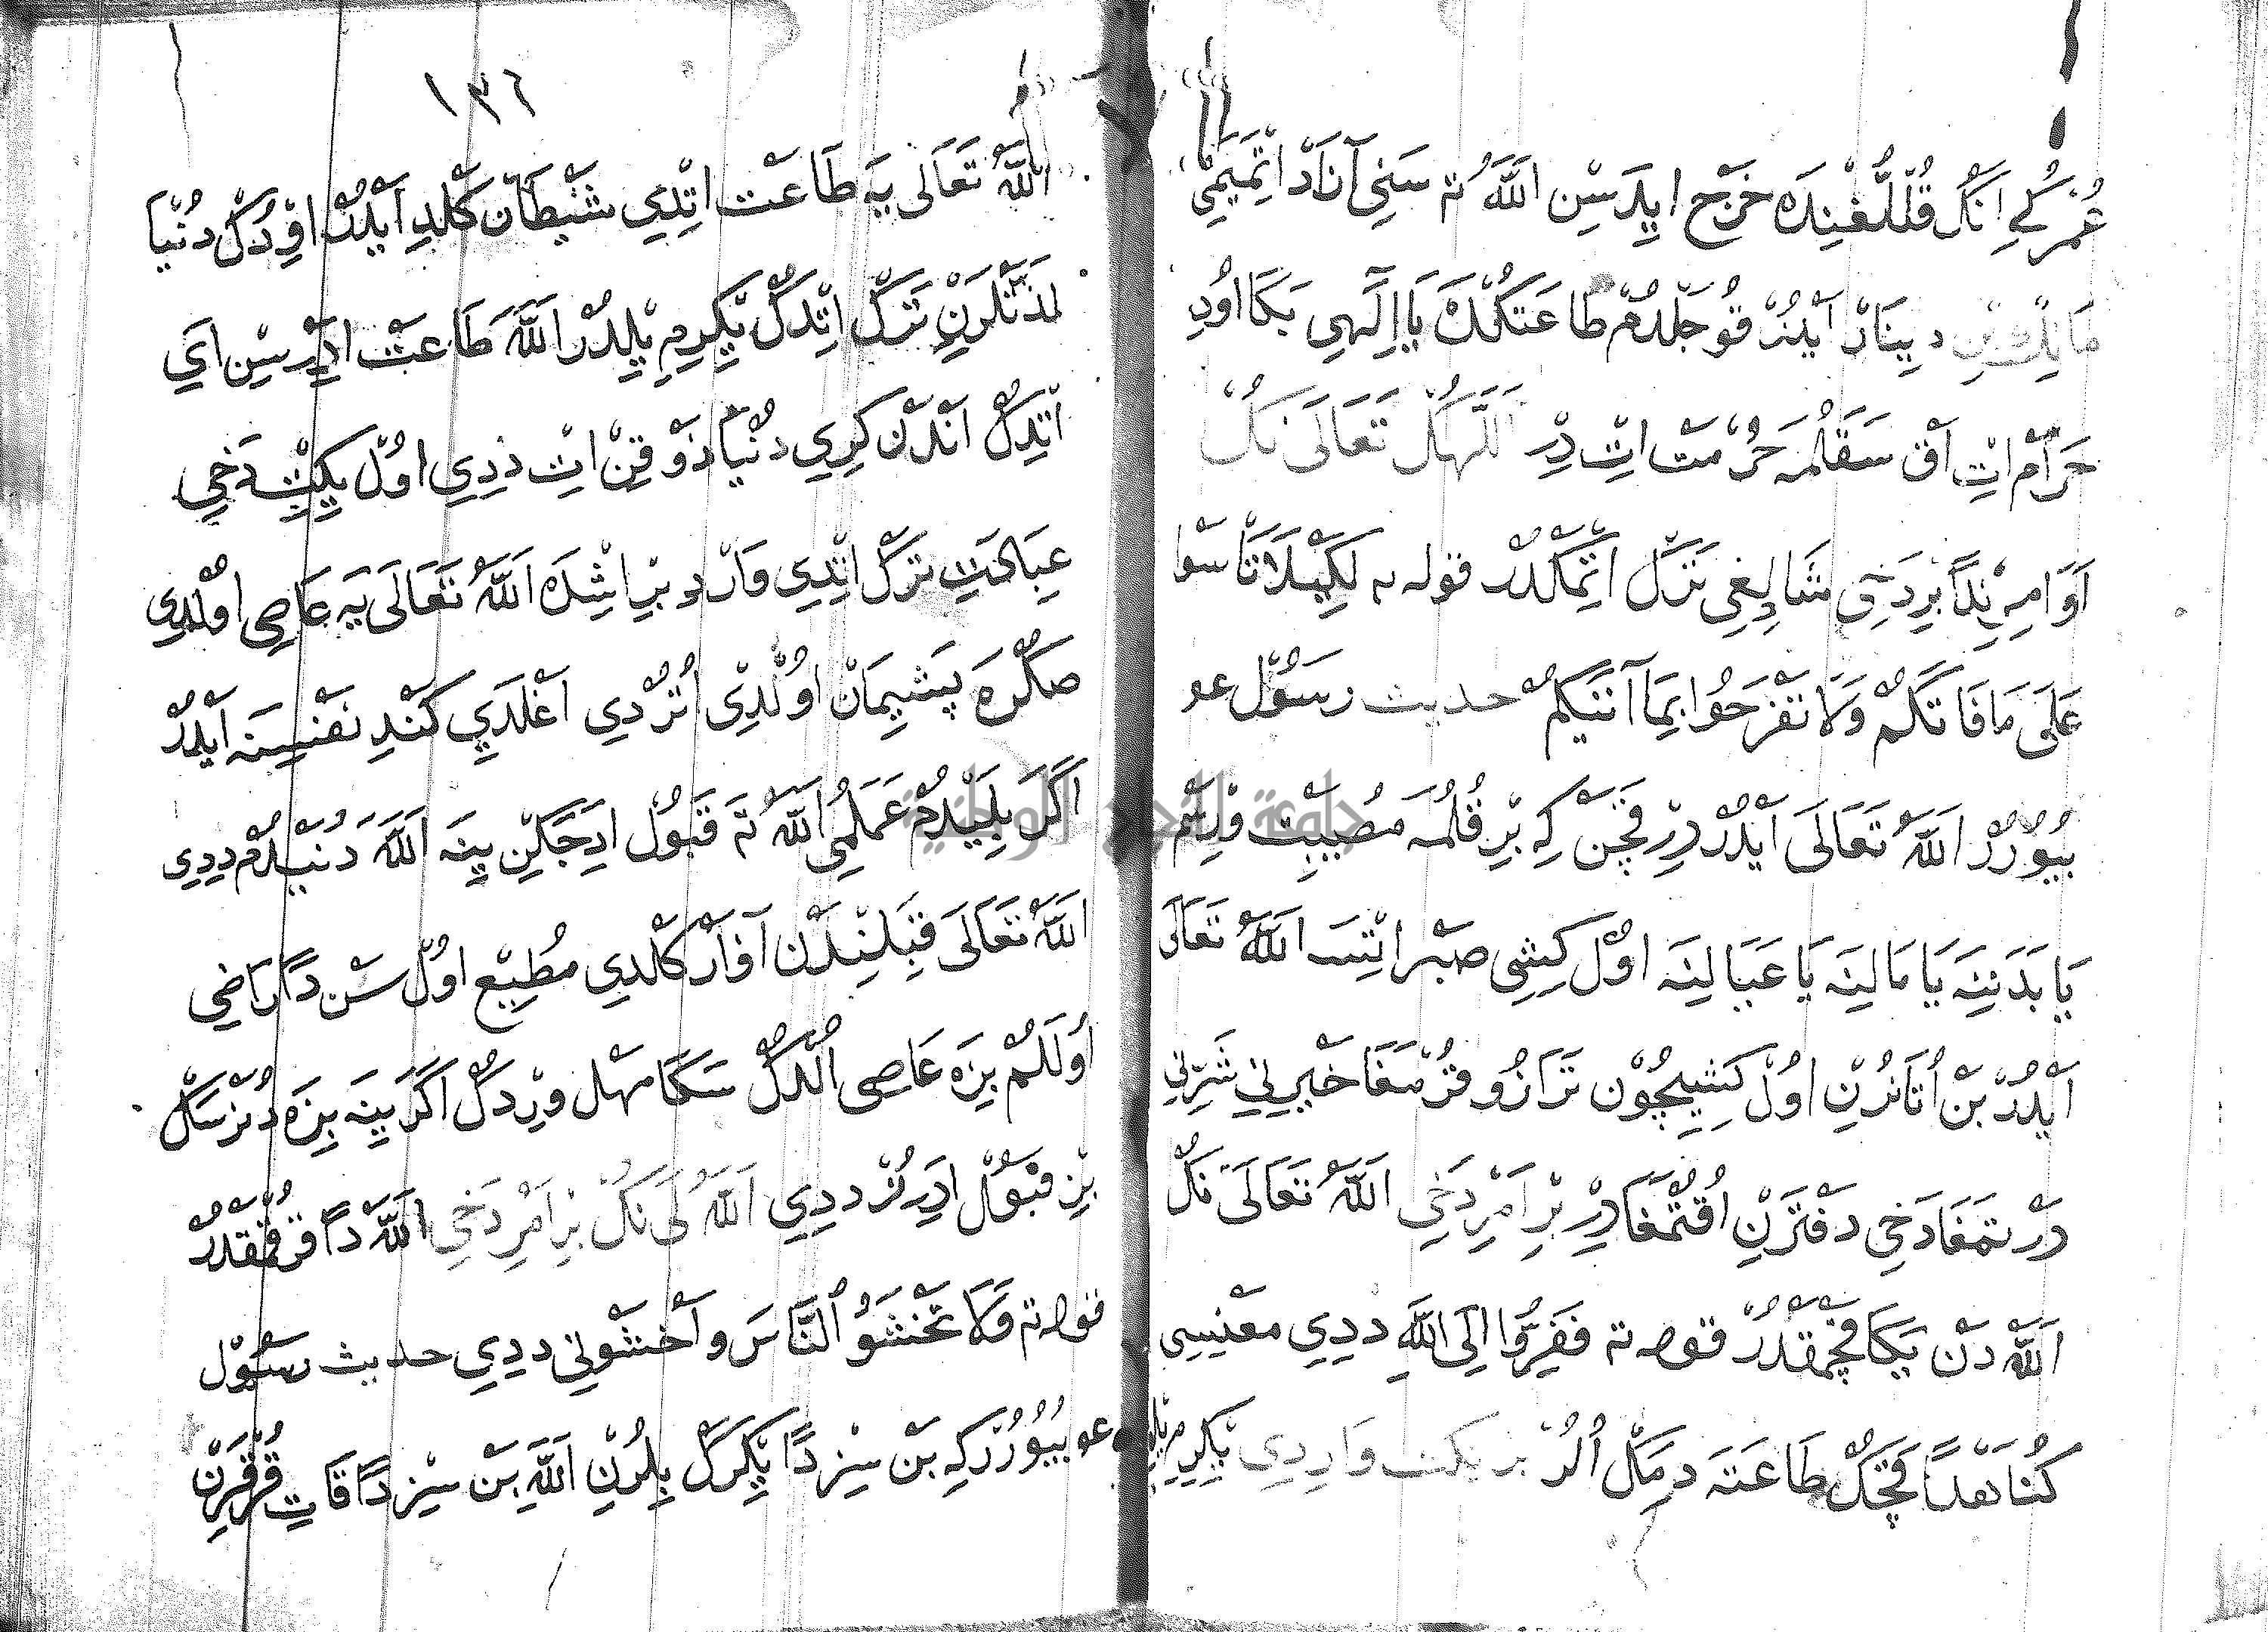 عُمْرُكِ اَنُكْ قُلْلُغُنْدَه خَرْج اِيدَسِن اَللّٰهُ تَ سَنِي آزَادْ اِتْمَيَمِي
مَالِكْ بِنِ دِينَارْ اَيْدُرْ قُوجَلْدُمْ طَاعَتُكْدَه يَا اِلٰهِي بَكَا اُودِ
حَرَامْ اِتْ آقْ سَقَالُمَه حُرْمَتْ اِتْ دِرْ اَللّٰهُ تَعَالَى نِكُ
اَوَامِرِنْدَا بِرِ دَخِي شَادِلِغِي تَرْكْ اِتْمَكْدُرْ قوله ته لِكَيْلَا تَأْسَوْا
عَلَى مَا فَاتَكُمْ وَلَا تَفْرَحُوا بِمَا آتَيكُمْ حديث رَسُولْ عو
بُيُورُرْ اَللّٰهُ تَعَالَى اَيْدُرْ دِرْ قَچَنْ كِه بْرِ قُلُمَه مُصِيبَتْ وِرْسَمْ
يَا بَدَنِنَه يَا مَالِنَه يَا عَيَالِنَه اوُلْ كِشِي صَبْر اِتْسَه اَللّٰهُ تَعَالَى
اَيْدُرْ بَنْ اُتَانُرِنْ اوُلْ كِشِيچُونْ تَرَازُو قُرْمَغَا خَيْرِنِي شَرِّنِي
دَرْتمَغَا دَخِي دَفْتَرِنْ اُقُتْمَغَا دِرْ بْرِ اَمْرِ دَخِي اَللّٰهُ تَعَالَى نِكُ
اَللّٰه دَنْ يَكَا قَچْمَقْدُرْ قوله ته فَفِرُّوا اِلَى اللّٰهِ دِدِي مَعْنِسِي
كُنَاهْدَا قَچَكْ طَاعَتَه دِمَكْ اُلُرْ بْرِ يِكِتْ وَارِدِي يِكِرِمِ يِلْ
١٣٦
اَللّٰهُ تَعَالَى يَه طَاعَتْ اِتْدِي شَيْطَانْ كَلْدِ اَيْدُرْ اوُدُكْ دُنْيَا
لَذَّتْلَرِنِ تَرْكْ اِتْدُكْ يِكِرِمِ يِلْدُرْ اَللّٰهَ طَاعَتْ اِدَرْسِنْ اَيِ
اِتْدُكْ اَنْدَنْ كِرِي دُنْيَا ذَوْقِنْ اِتْ دِدِي اوُلْ يِكِتْ دَخِي
عِبَادَتِ تَرْكْ اِتْدِي وَارْدِ بْرِ اِشْدَه اَللّٰهُ تَعَالَى يَه عَاصِي اوُلْدِي
صَكْرَه پَشِيمَانْ اوُلْدِي اُتُرْدِي اَغْلَدِي كَنْدِ نَفْسِنَه اَيْدُرْ
اَكَرْ بِلَيْدُمْ عَمَلُمِي اَللّٰهُ تَ قَبُولْ اِدَجَكِنْ يِنَه اَللّٰهَ دُنَيْدُمْ دِدِي
اَللّٰهُ تَعَالَى قِبَلِنْدَنْ آوَازْ كَلْدِي مُطِيعْ اوُلْ سَنْ دَا رَاضِي
اُولَلُمْ بِزَه عَاصِي اُلْدُكْ سَكَا مَهْل وِرْدُكْ اَكَرْ يِنَه بِزَه دُنَرْسَكْ
بِزْ قَبُولْ اِدَرُزْ دِدِي اَللّٰهُ تَعَالَى نِكُ بْرِ اَمْرِ دَخِي اَللّٰهْ دَا قُرْقْمَقْدُرْ
قوله ته فَلَا تَخْشَوُا النَّاسَ وَاخْشَوْنِي دِدِي حديث رَسُولْ
عو بُيُورُرْ كِه بَنْ سِزْدَا يِكْرَكْ بِلُرِنِ اَللّٰهِ بَنْ سِزْدَا قَاتِ قُرْقَرِنْ